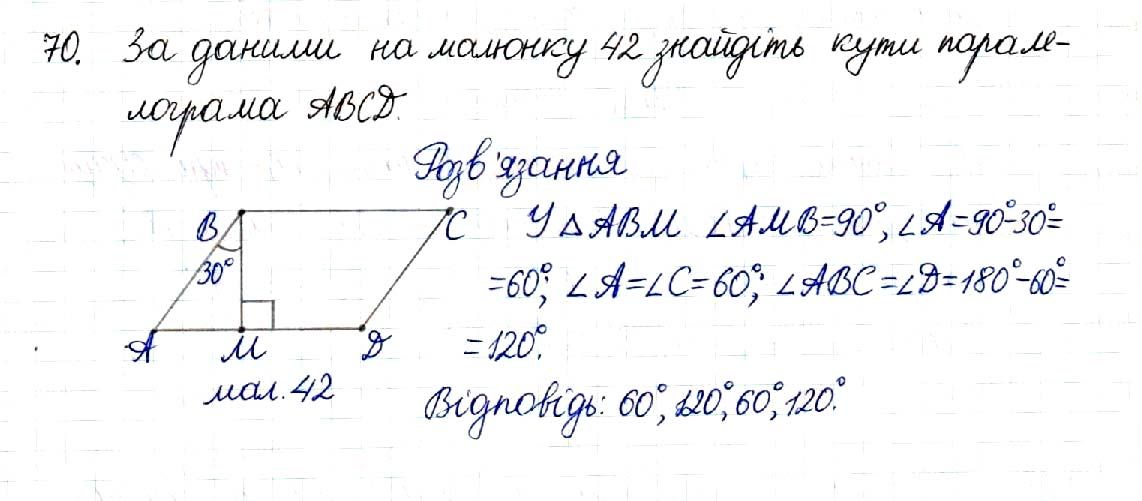 70. За даними на малюнку 42 знайдіть кути парале-
лограма ABCD.
Розв'язання
B
C
30°
A
M
D
мал. 42
У △ABM ∠AMB=90°, ∠A=90°-30°=
=60°; ∠A=∠C=60°; ∠ABC=∠D=180°-60°=
=120°.
Відповідь: 60°, 120°, 60°, 120°.